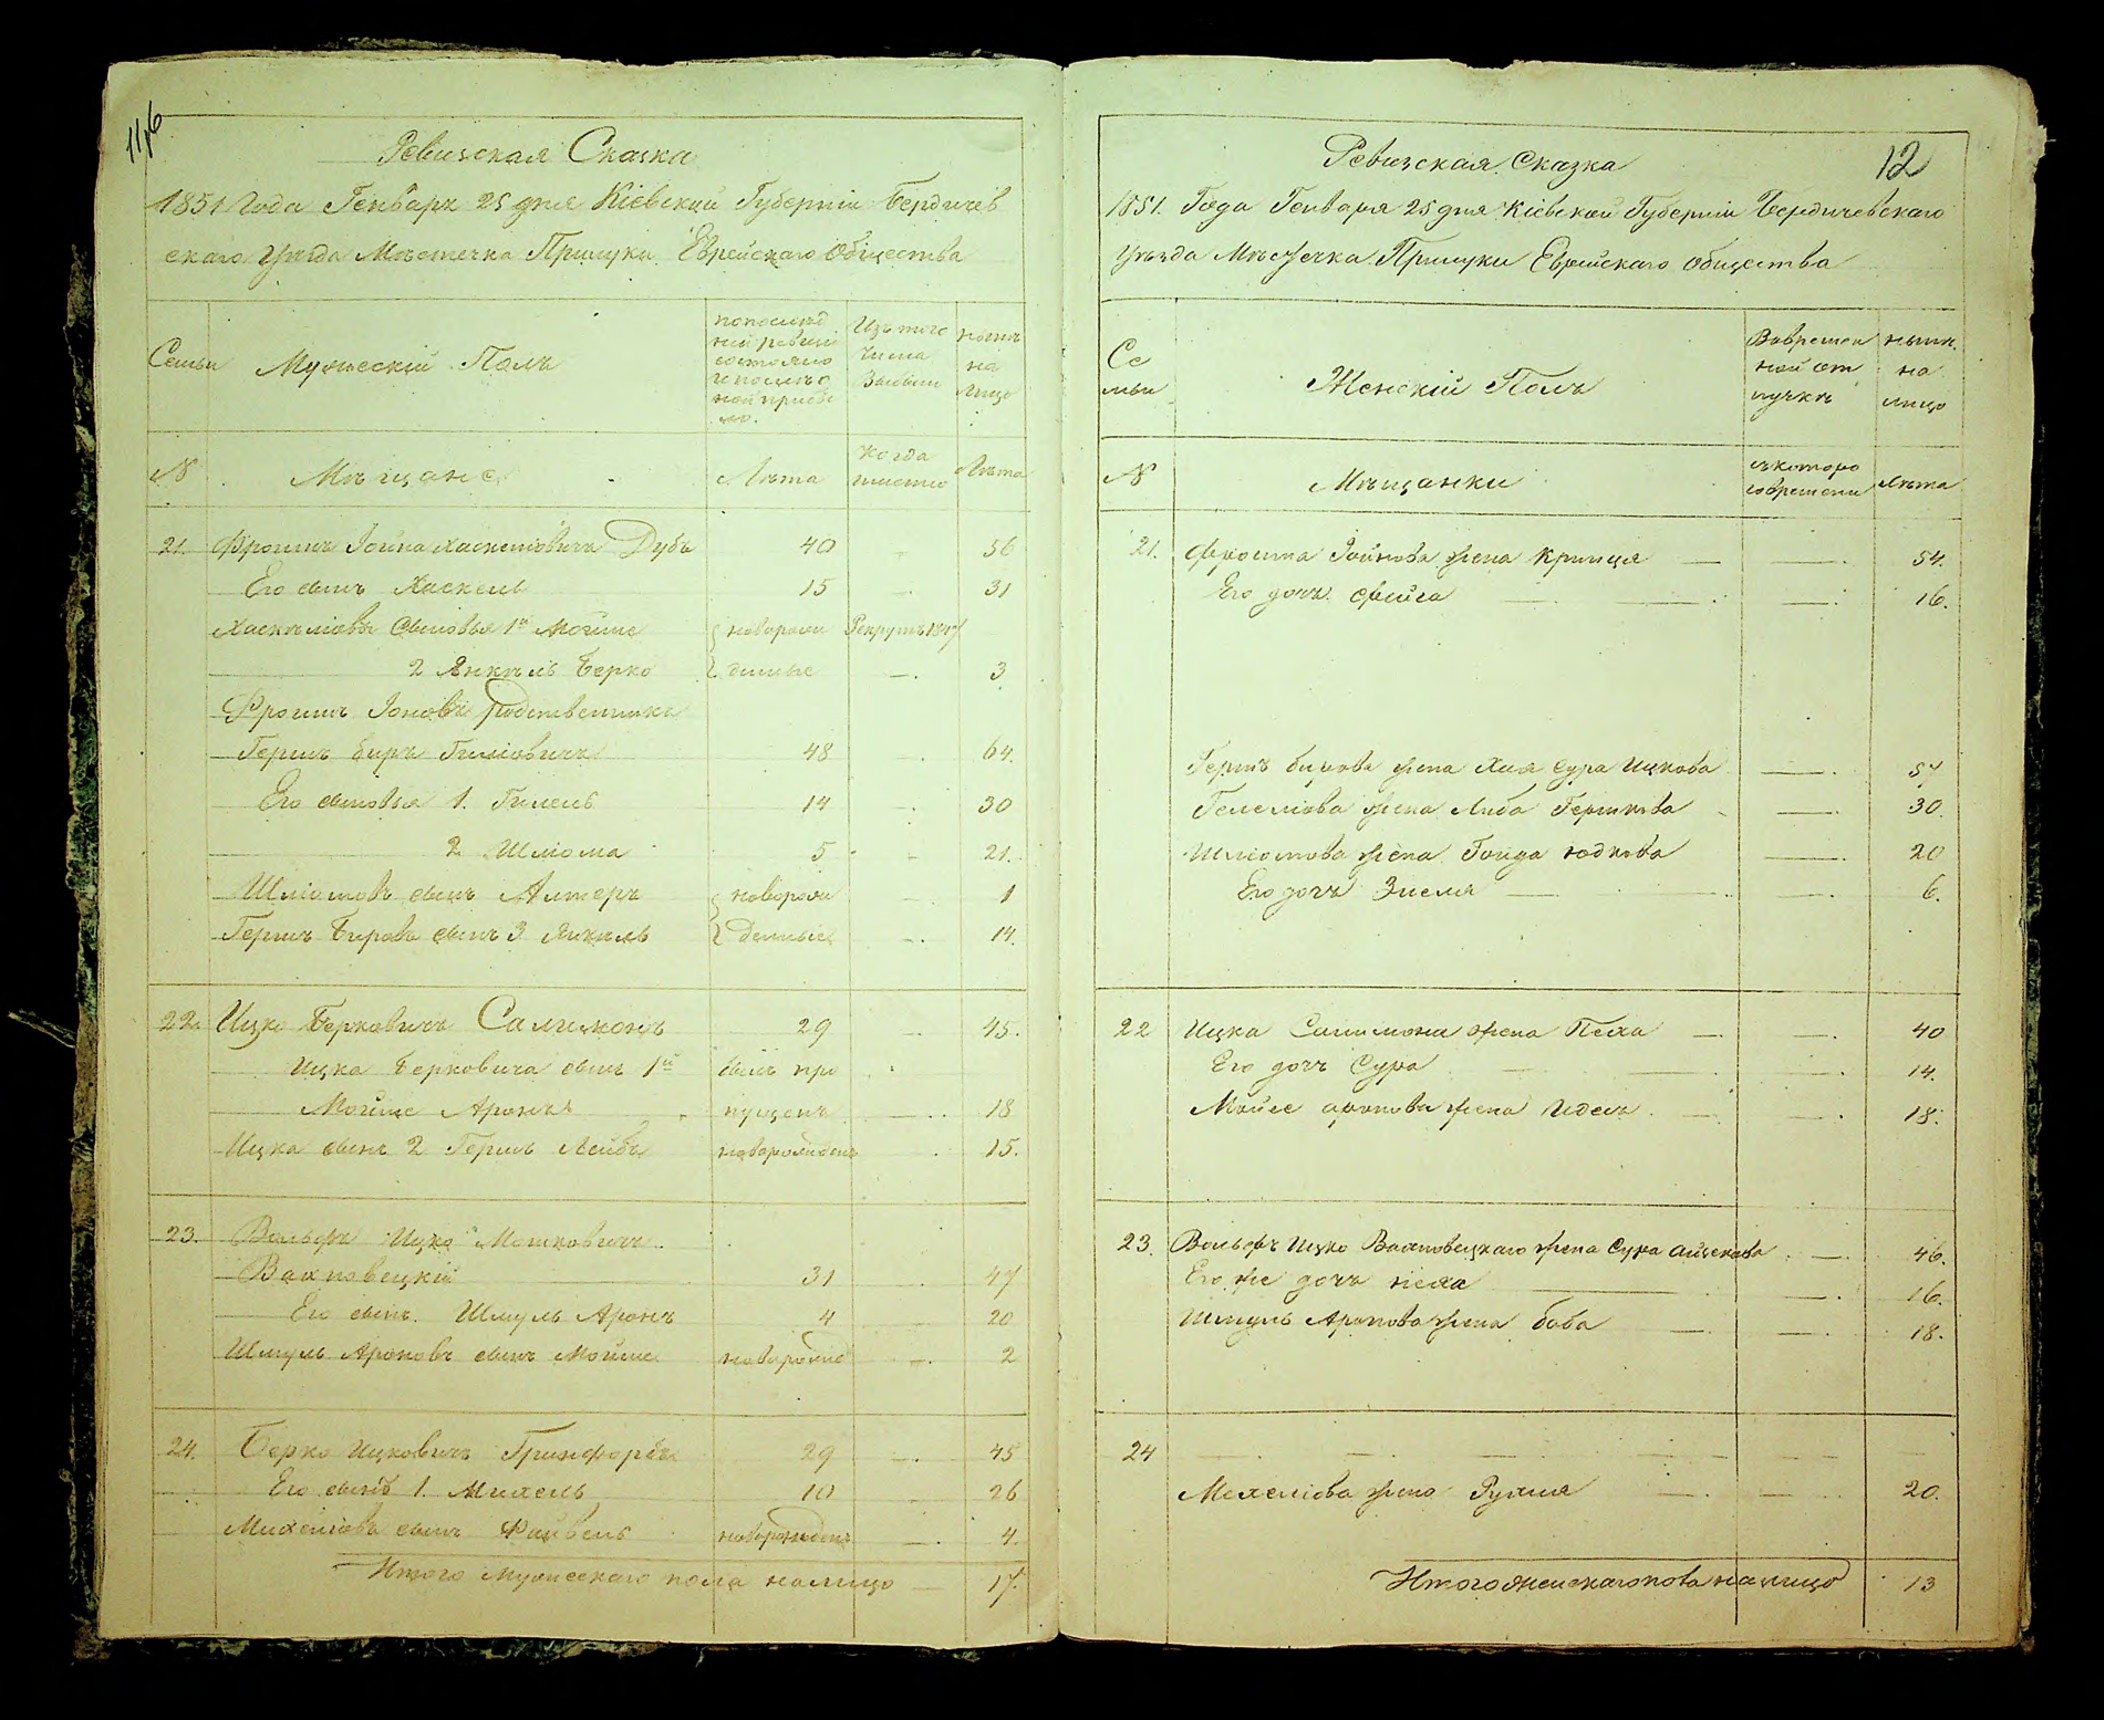 11об
Ревизская Сказка
1851 Года Генваря 25 дня Кіевской Губерніи Бердичев
скаго Уѣзда Мѣстечка Прилуки Еврейскаго Общества
Семьи
Мужескій Полъ
по послѣд
ней ревизіи
состояло
и послѣ о
ной прибы
ло.
Изъ того
числа
Выбыли
нынѣ
на
лицо
№
Мѣщане
Лѣта
Когда
именно
Лѣта
21. Фроимъ Іойна Хаскелiовичъ Дубъ 40 56
Его сынъ Хаскель 15 31
Хаскелiовы Сыновья 1й Мойше новорож Рекрутъ 1847
2 Янкель Берко денные 3
Фроимъ Іоновъ родственникъ
Гершъ беръ Гилiовичъ 48 64.
Его сыновья 1. Гилель 14 30
2 Шліома 5 21.
Шліомовъ сынъ Алтеръ новорож 1
Гершъ Берова сынъ 3 Янкель денные 14.
22. Ицко Берковичъ Салимонъ 29 45.
Ицка Берковича сынъ 1й былъ про
Мойше Аронъ пущенъ 18
Ицка сынъ 2 Гершъ Лейбъ новорожденъ 15.
23. Вольфъ Ицко Мошковичъ
Вахновецкій 31 47
Его сынъ Шмуль Аронъ 4 20
Шмуль Ароновъ сынъ Мойше новорожд 2
24. Берко Ицковичъ 29 45
Его сынъ 1. Михель 10 26
Михелiова сынъ Файвель новорожденъ 4.
Итого мужескаго пола налицо 17.
12
Ревизская Сказка
1851. Года Генваря 25 дня Кіевской Губерніи Бердичевскаго
Уѣзда Мѣстечка Прилуки Еврейскаго Общества
Се
мьи
Женскій Полъ
Вовремен
ной от
лучкѣ
нынѣ
на
лицо
№
Мѣщанки
съ которо
го времени
Лѣта
21. Фроима Іойнова жена Крейнця 54.
Его дочь Фейга 16.
Гершъ Берова жена Хая Сура Ицкова 57
Гилелiова жена Либа Гершкова 30.
Шліомова жена Юдкова 20
Его дочь 6.
22 Ицка Салимона жена Песя 40
Его дочь Сура 14.
Мойше Аронова жена 18.
23. Вольфъ Ицко Вахновецкаго жена Сура 46.
Его же дочь 16.
Шмуль Аронова жена Боба 18.
24
Мехелiова жена Рухля 20.
Итого женскаго пола налицо 13